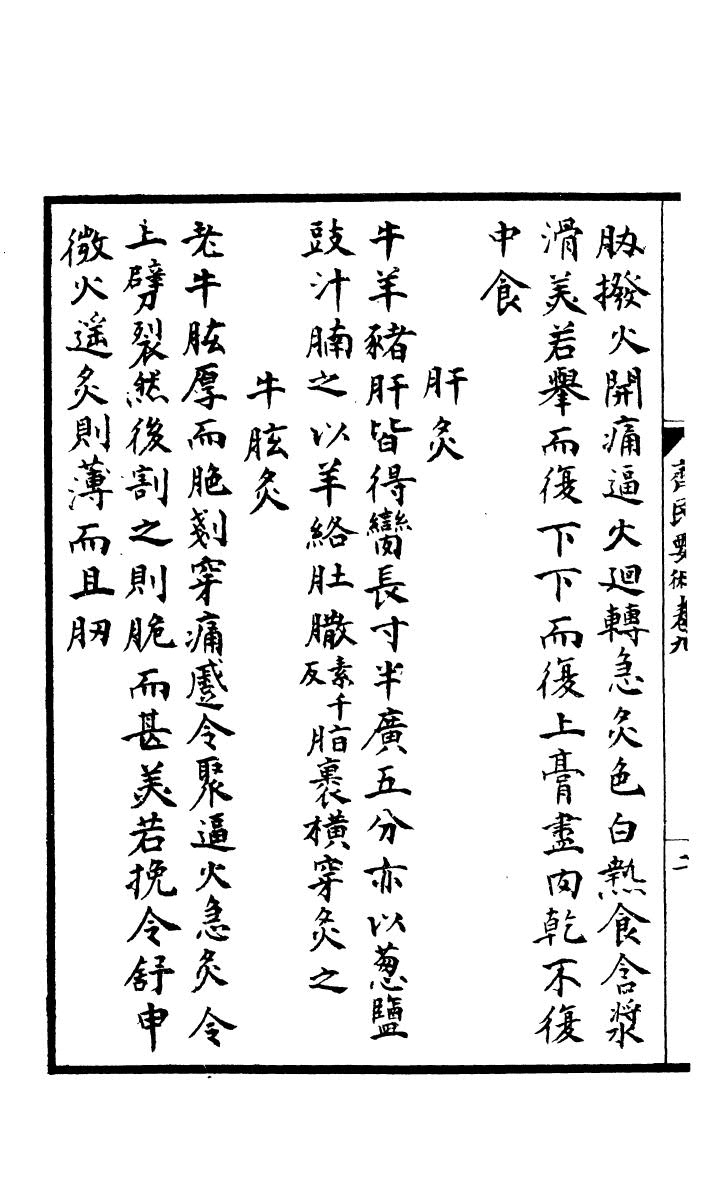 胁撥火開痛逼火迴轉急炙色白熱食含漿
滑美若舉而復下下而復上膏盡肉乾不復
中食
肝炙
牛羊豬肝皆得臠長寸半廣五分亦以葱鹽
豉汁腩之以羊絡肚𦠿素千反脂裹橫穿炙之
牛胘炙
老牛胘厚而脆剗穿痛蹙令聚逼火急炙令
上劈裂然後割之則脆而甚美若挽令舒申
微火遥炙則薄而且肕
齊民要術卷九
二